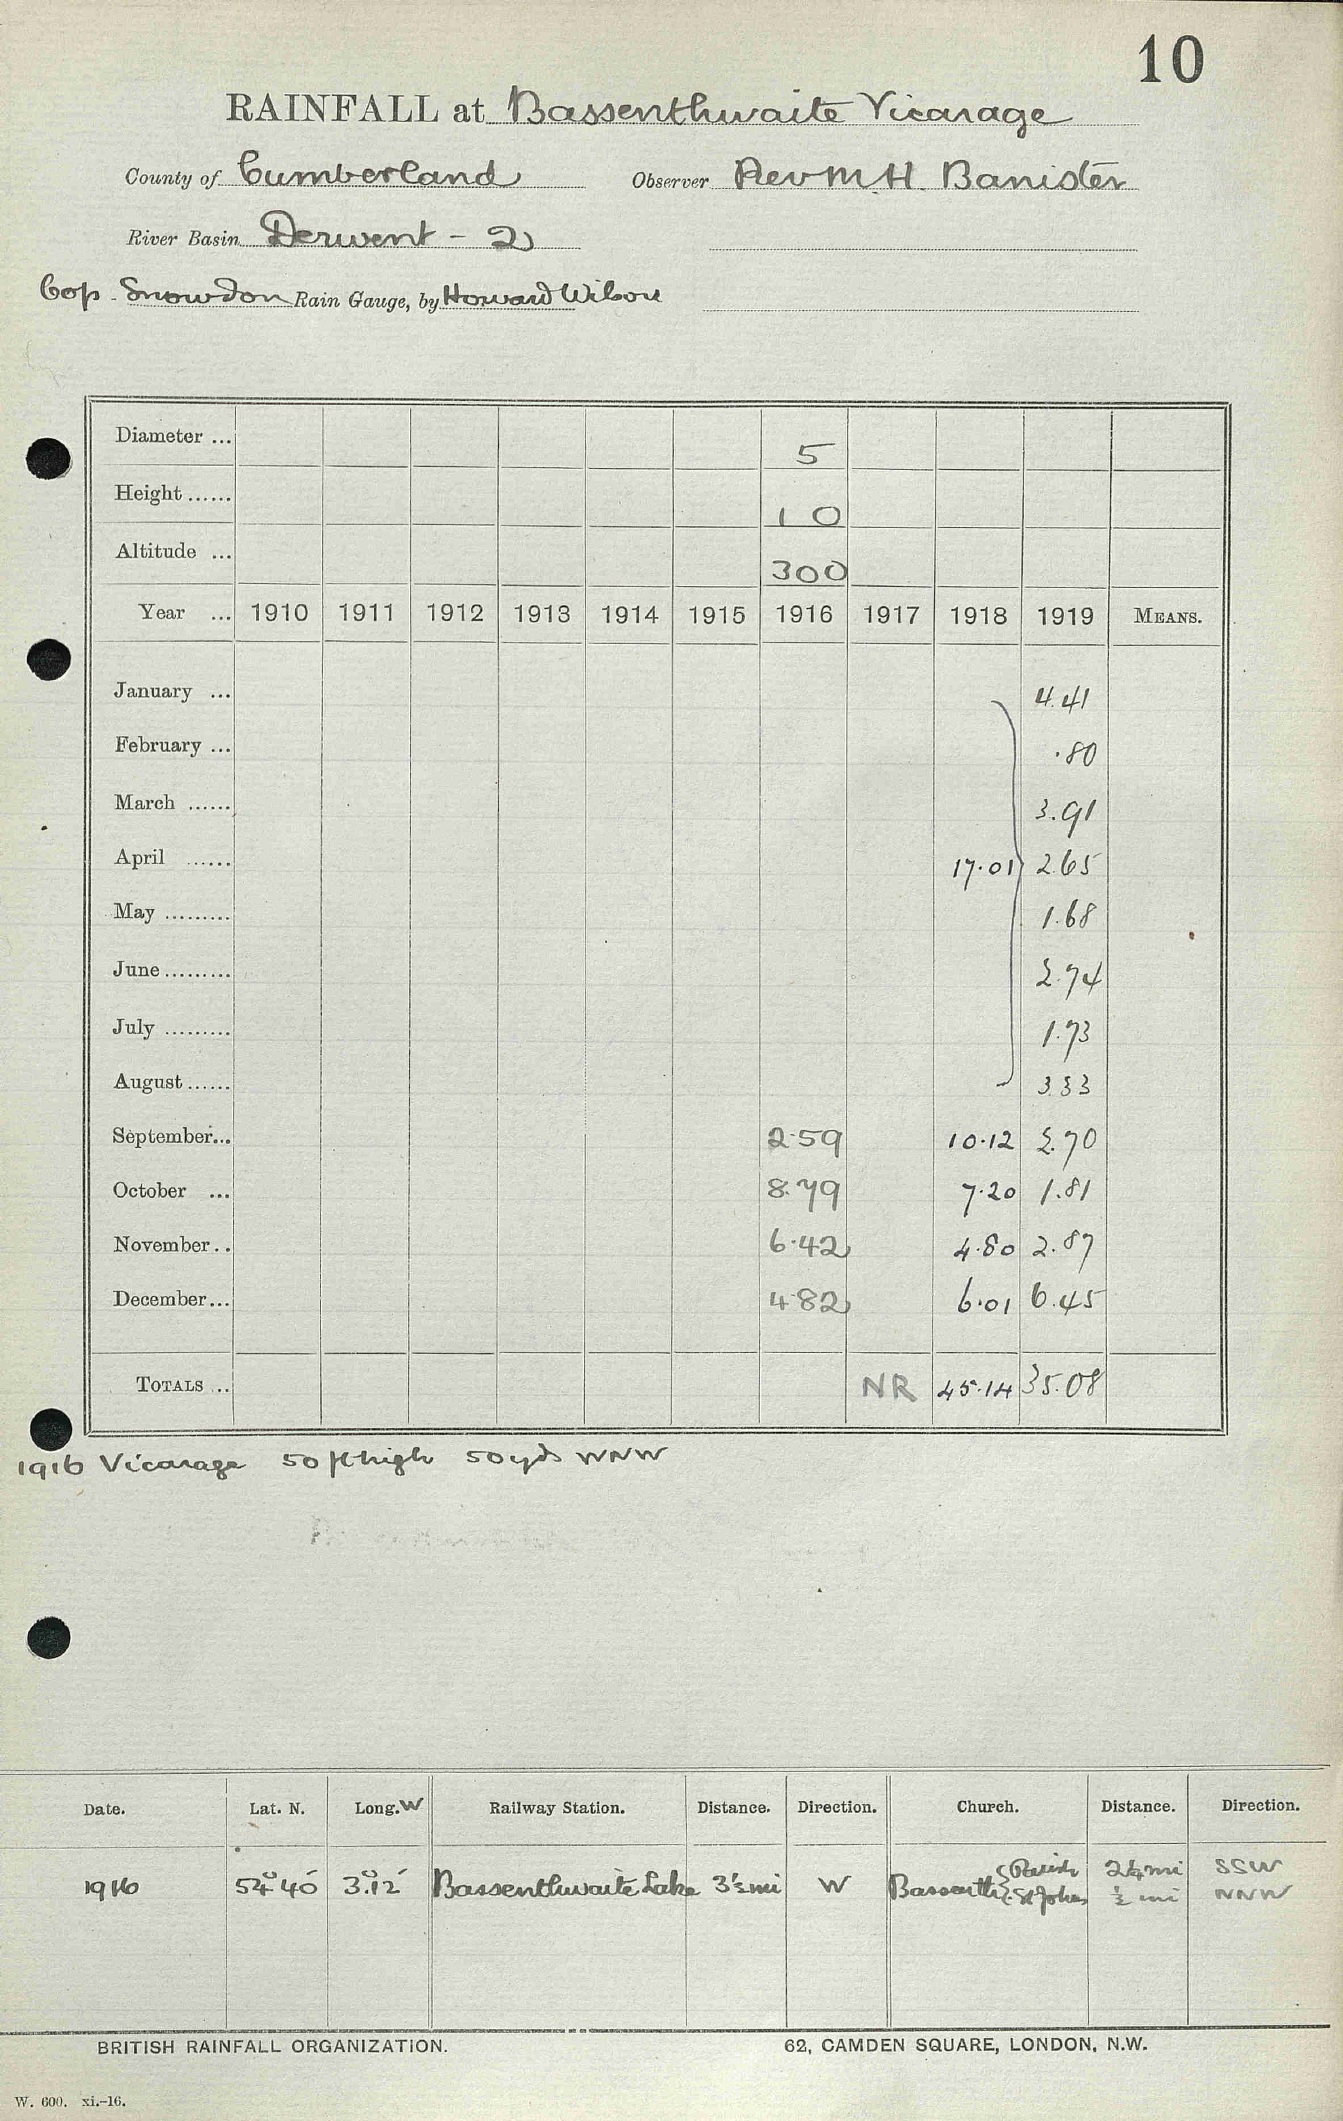 10
RAINFALL at Bassenthwaite Vicarage
County of Cumberland Observer Rev M. H. Banister
River Basin Derwent - 2
Cop. Snowdon Rain Gauge, by Howard Wilson
Diameter ... 5
Height ...... 10
Altitude ... 300
Year ... 1910 1911 1912 1913 1914 1915 1916 1917 1918 1919 MEANS.
January ... 4.41
February ... .80
March ...... 3.91
April ...... 17.01 2.65
May ......... 1.68
June ......... 2.74
July ......... 1.73
August ...... 3.33
September... 2.59 10.12 2.70
October ... 8.79 7.20 1.81
November.. 6.42 4.80 2.87
December... 4.82 6.01 6.45
TOTALS ... NR 45.14 35.08
1916 Vicarage 50 ft high 50 yds WNW
Date. Lat. N. Long. W Railway Station. Distance. Direction. Church. Distance. Direction.
1916 54° 40' 3° 12' Bassenthwaite Lake 3½ mi W Bassenth { Parish 2¼ mi SSW
St Johns ½ mi NNW
BRITISH RAINFALL ORGANIZATION. 62, CAMDEN SQUARE, LONDON, N.W.
W. 600. xi.-16.